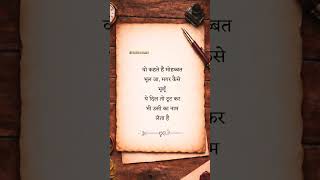 वो कहते हैं मोहब्बत
भूल जा, मगर कैसे
भूलूँ
ये दिल तो टूट कर
भी उसी का नाम
लेता है